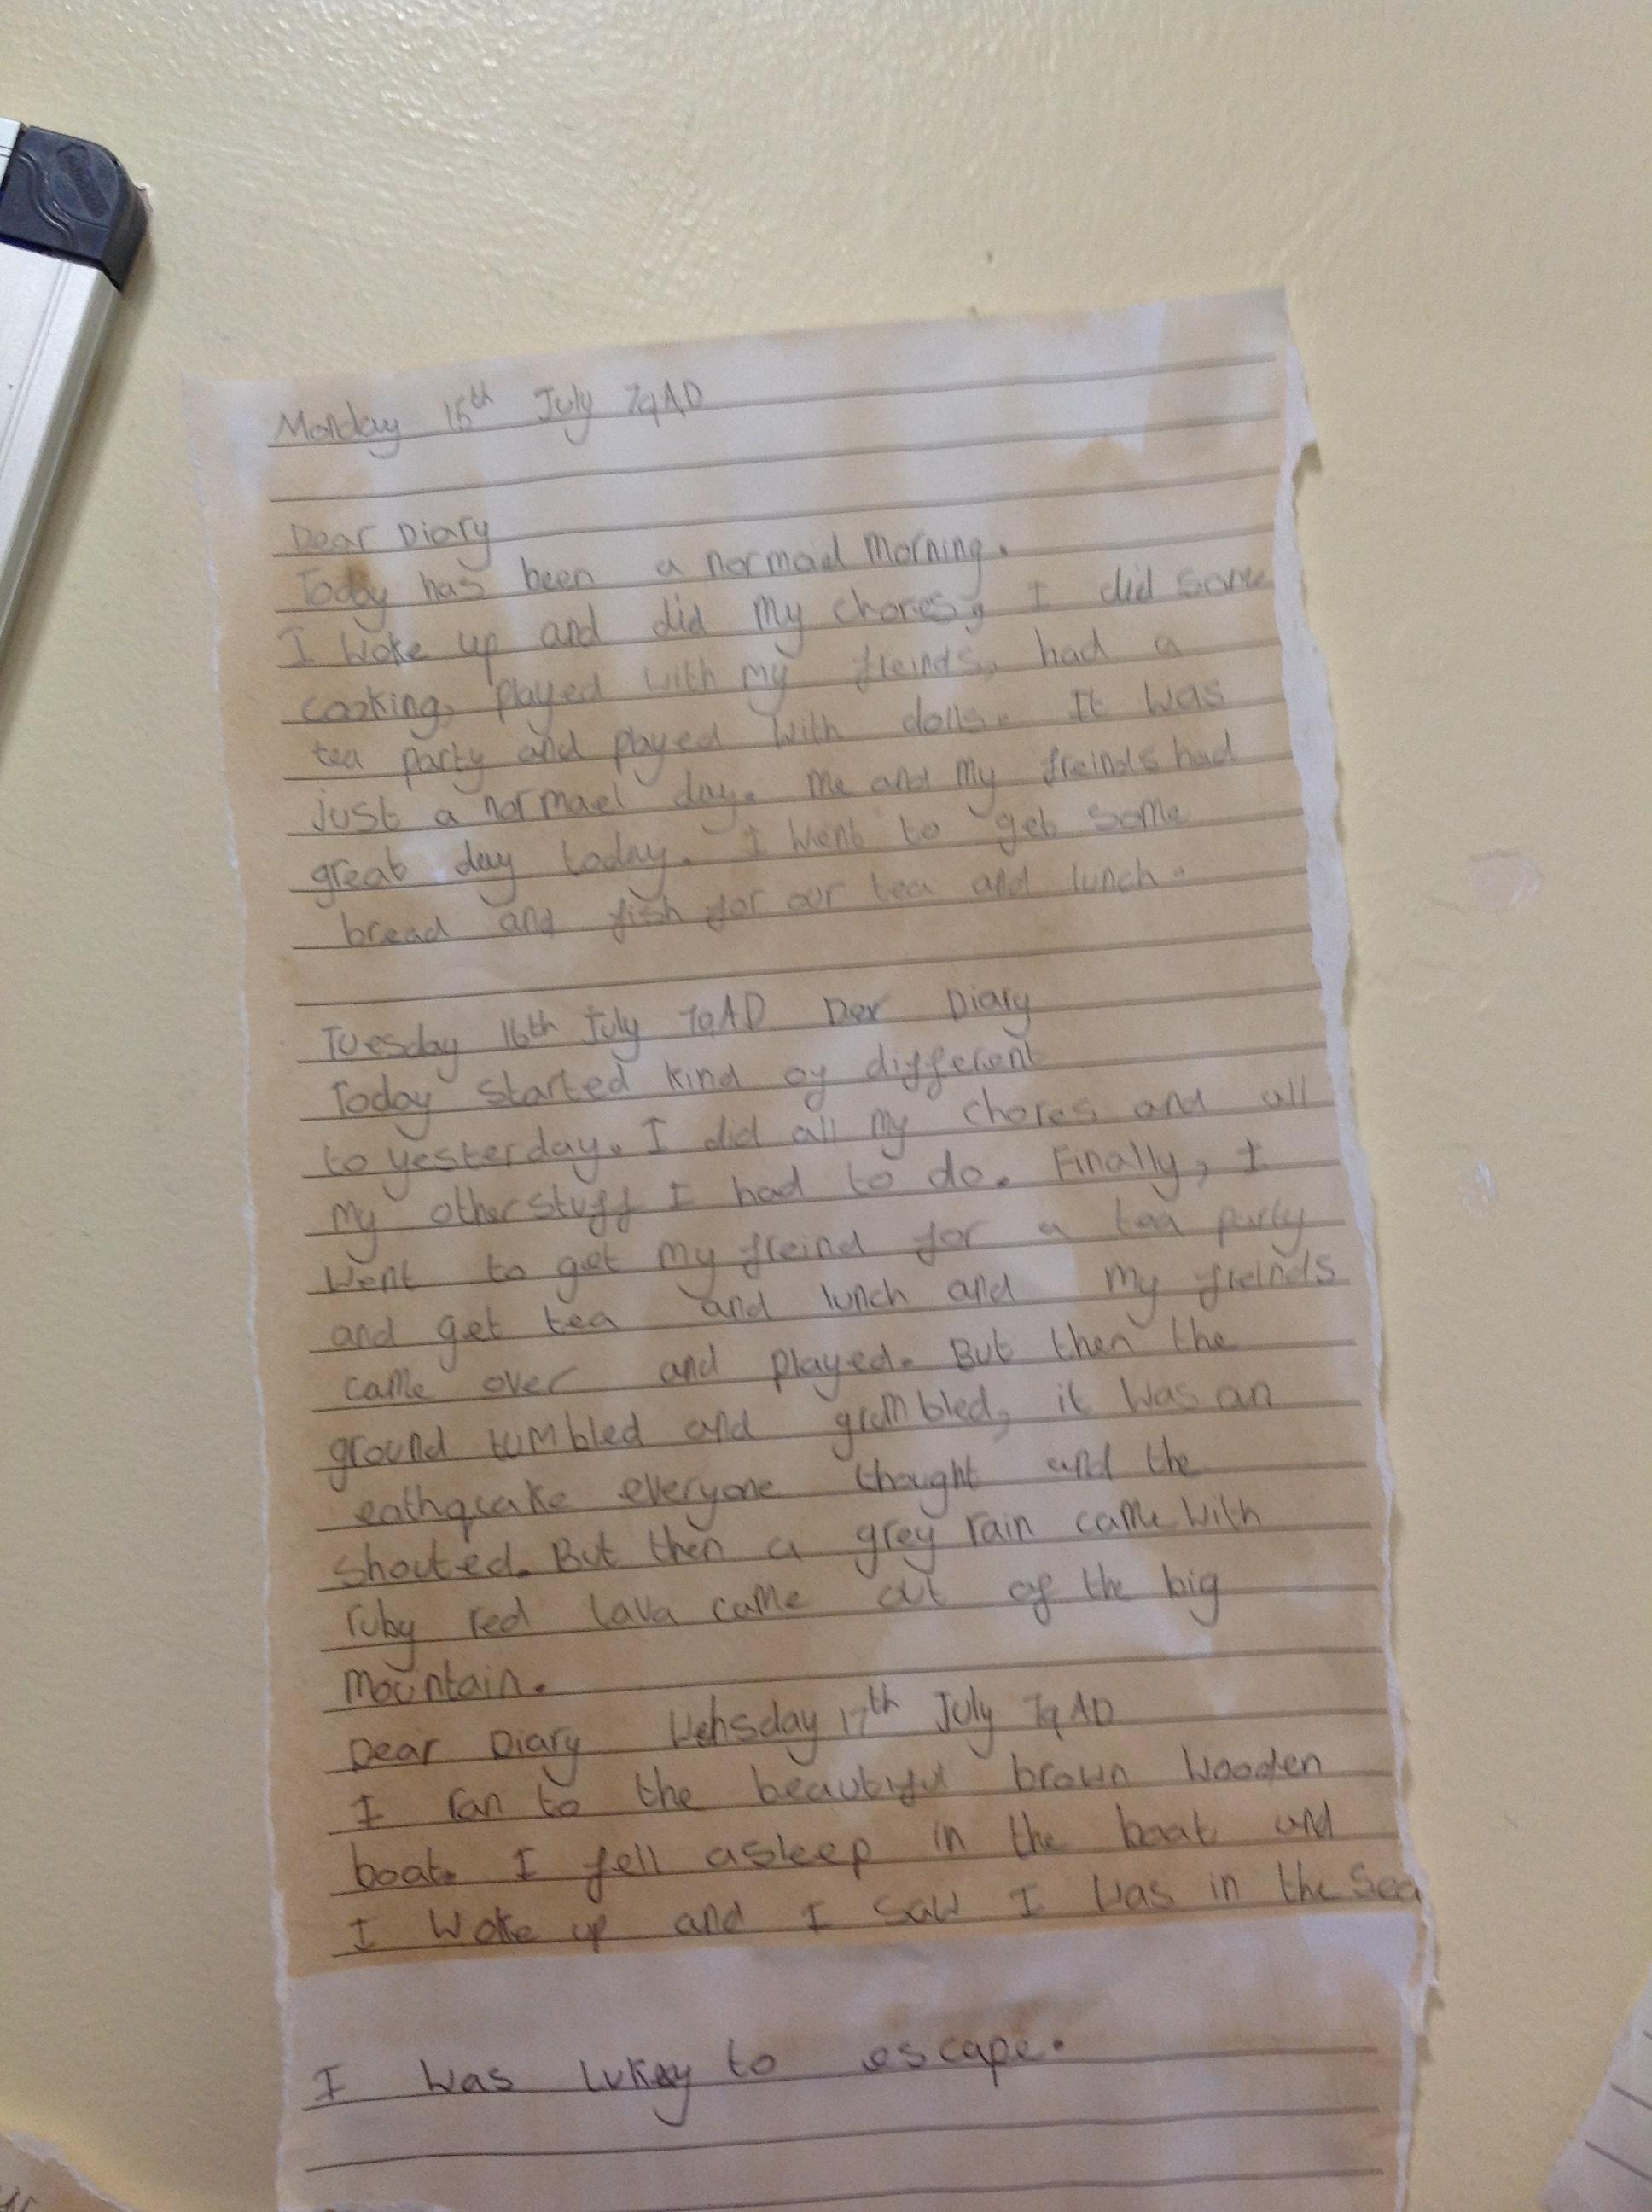 Monday 15th July 79AD
Dear Diary
Today has been a normael morning.
I woke up and did my chores, I did some
cooking, played with my freinds, had a
tea party and played with dolls. It was
just a normael day. Me and my freinds had
great day today. I went to get some
bread and fish for our tea and lunch.
Tuesday 16th July 79AD Der Diary
Today started kind of different
to yesterday. I did all my chores and all
my other stuff I had to do. Finally, I
went to get my freind for a tea party
and get tea and lunch and my freinds
came over and played. But then the
ground tumbled and grumbled, it was an
eathquake everyone thought and the
shouted. But then a grey rain came with
ruby red lava came out of the big
mountain.
Dear Diary Wehsday 17th July 79AD
I ran to the beautiful brown wooden
boat. I fell asleep in the boat and
I woke up and I saw I was in the sea
I was lukey to escape.